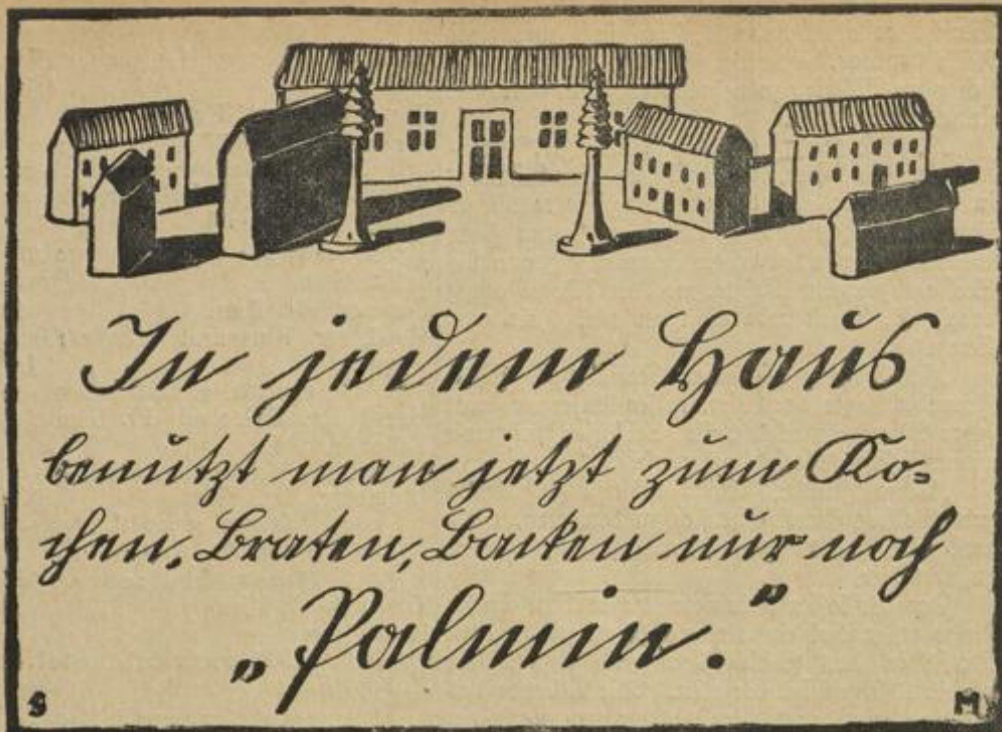 In jedem Haus
benützt man jetzt zum Ko=
chen, Braten, Backen nur noch
„Palmin."
S M